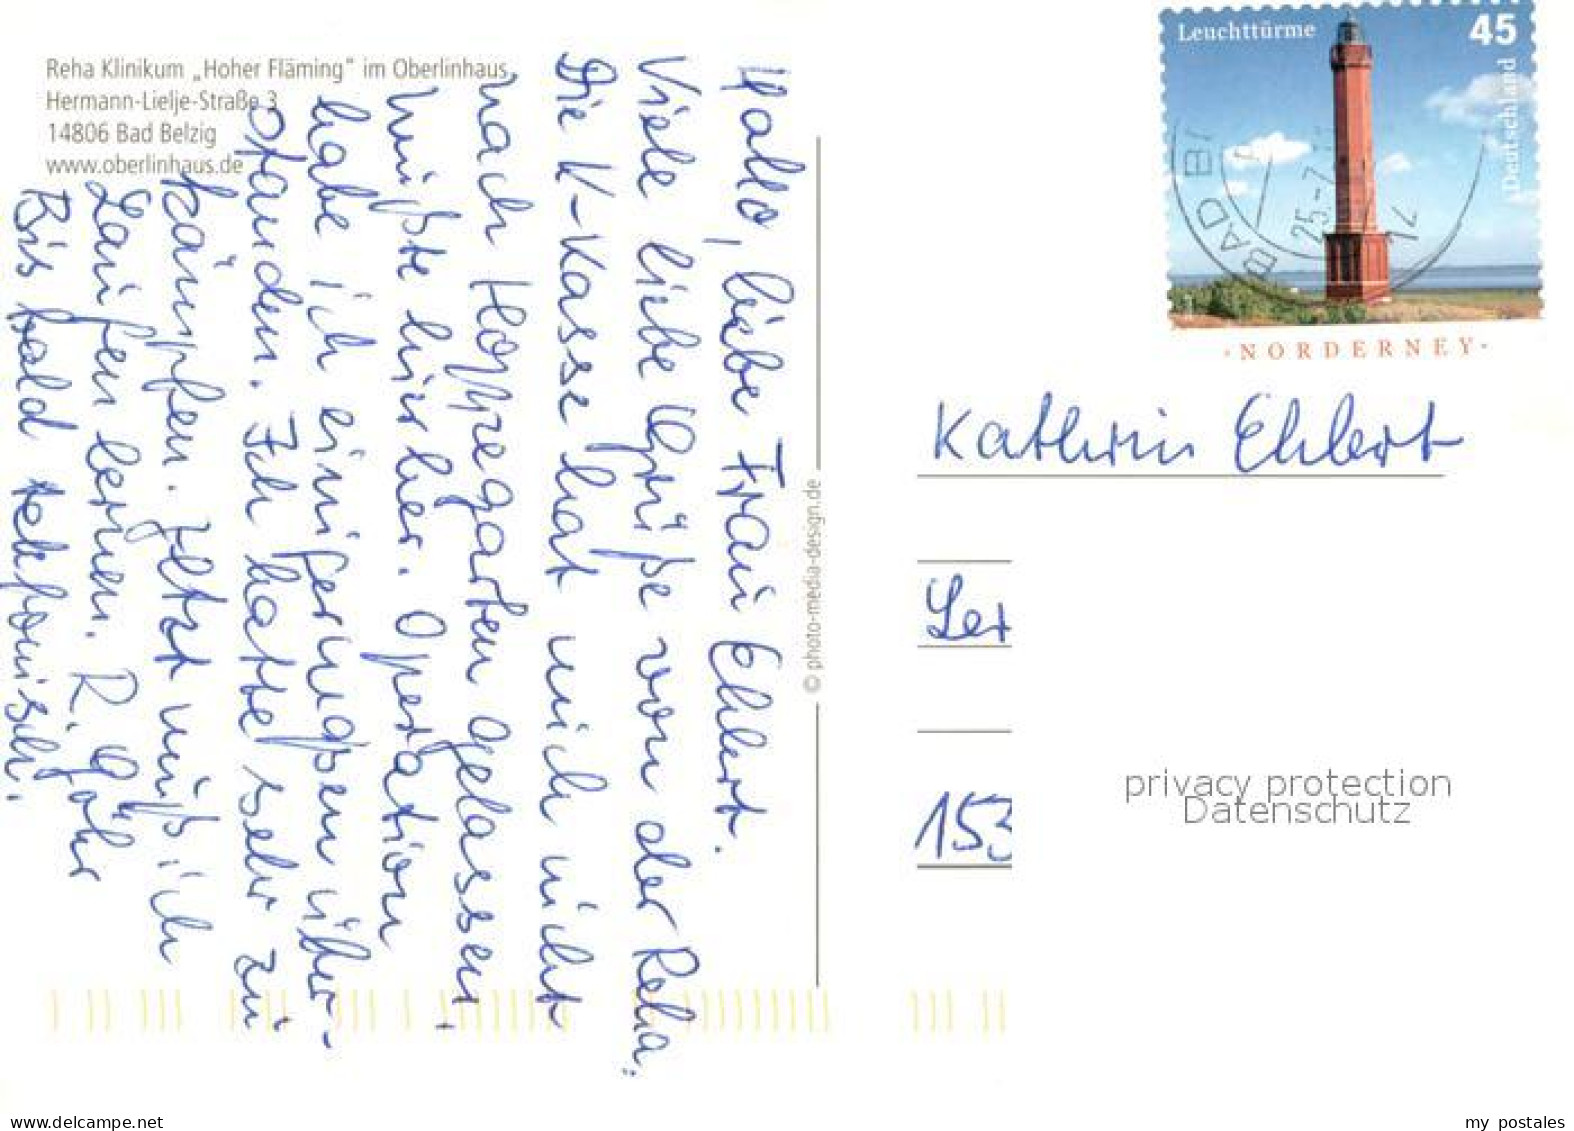 Reha Klinikum „Hoher Fläming" im Oberlinhaus
Hermann-Lielje-Straße 3
14806 Bad Belzig
www.oberlinhaus.de
Hallo, liebe Frau Ehlert.
Viele liebe Grüße von der Reha.
Die K-Kasse hat mich nicht
nach Hoppegarten gelassen,
mußte hierher. Operation
habe ich einigermaßen über-
standen. Ich hatte sehr zu
kämpfen. Jetzt muß ich
Laufen lernen. R. Göhr
Bis bald telefonisch.
© photo-media-design.de
Leuchttürme 45
Deutschland
BAD B
25.-7. 14
·NORDERNEY·
Kathrin Ehlert
153
privacy protection
Datenschutz
www.delcampe.net
my postales